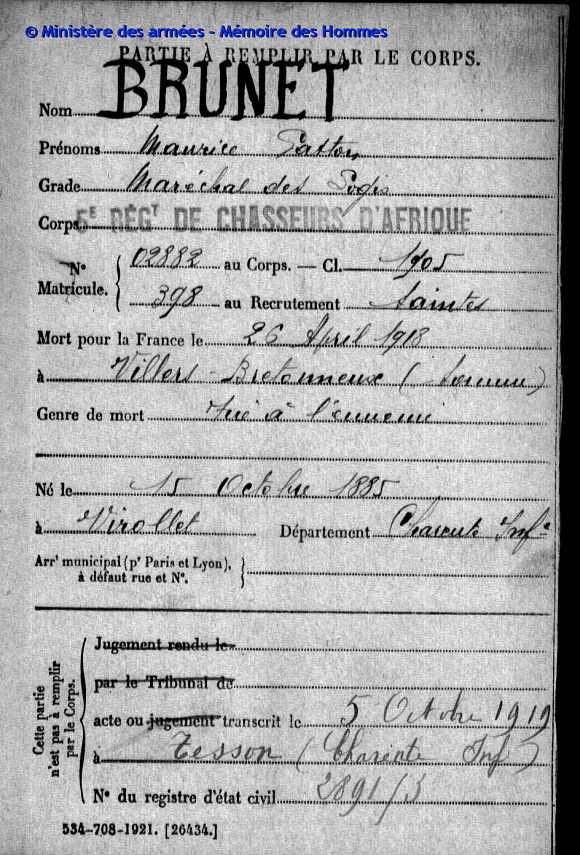 © Ministère des armées - Mémoire des Hommes
PARTIE À REMPLIR PAR LE CORPS.
Nom BRUNET
Prénoms Maurice Gaston
Grade Maréchal des Logis
Corps 5E RÉGT DE CHASSEURS D'AFRIQUE
N° 02882 au Corps. — Cl. 1905
Matricule. 398 au Recrutement Saintes
Mort pour la France le 26 April 1918
à Villers-Bretonneux (Somme)
Genre de mort Tué à l'ennemi
Né le 15 Octobre 1885
à Virollet Département Charente Infre
Arrt municipal (pr Paris et Lyon), à défaut rue et N°.
Cette partie n'est pas à remplir par le Corps.
Jugement rendu le
par le Tribunal de
acte ou jugement transcrit le 5 Octobre 1919
à Tesson (Charente Inf)
N° du registre d'état civil 2891/3
534-708-1921. [26434.]